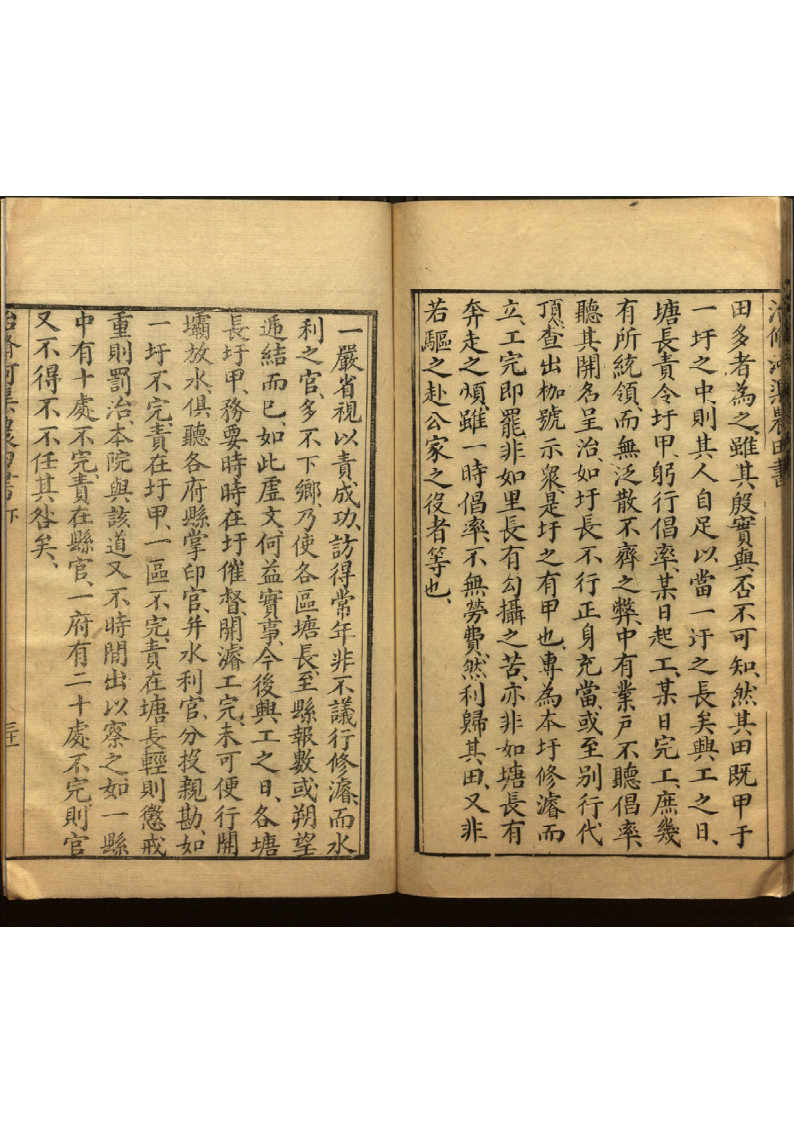 治修河渠農田書
田多者為之、雖其殷實與否不可知、然其田既甲于
一圩之中、則其人自足以當一圩之長矣、興工之日、
塘長責令圩甲、躬行倡率、某日起工、某日完工、庶幾
有所統領、而無泛散不齊之弊、中有業戶不聽倡率、
聽其開名呈治、如圩長不行正身充當、或至別行代
頂、查出枷號示眾、是圩之有甲也、專為本圩修濬而
立、工完即罷、非如里長有勾攝之苦、亦非如塘長有
奔走之煩、雖一時倡率、不無勞費、然利歸其田、又非
若驅之赴公家之役者等也、
一嚴省視以責成功、訪得常年非不議行修濬、而水
利之官、多不下鄉、乃使各區塘長、至縣報數、或朔望
遞結而已、如此虛文、何益實事、今後興工之日、各塘
長圩甲、務要時時在圩催督、開濬工完、未可便行開
壩放水、俱聽各府縣掌印官、并水利官、分投親勘、如
一圩不完、責在圩甲、一區不完、責在塘長、輕則懲戒
重則罰治、本院與該道又不時間出以察之、如一縣
中有十處不完、責在縣官、一府有二十處不完、則官
又不得不不任其咎矣、
治脩河渠農田書 下
三十二